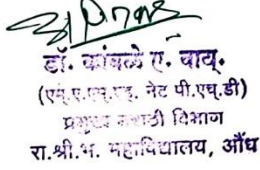 डॉ. कांबळे ए. वाय.
(एम.ए.एम.एड. नेट पी.एच.डी)
प्रमुख मराठी विभाग
रा.श्री.भ. महाविद्यालय, औंध